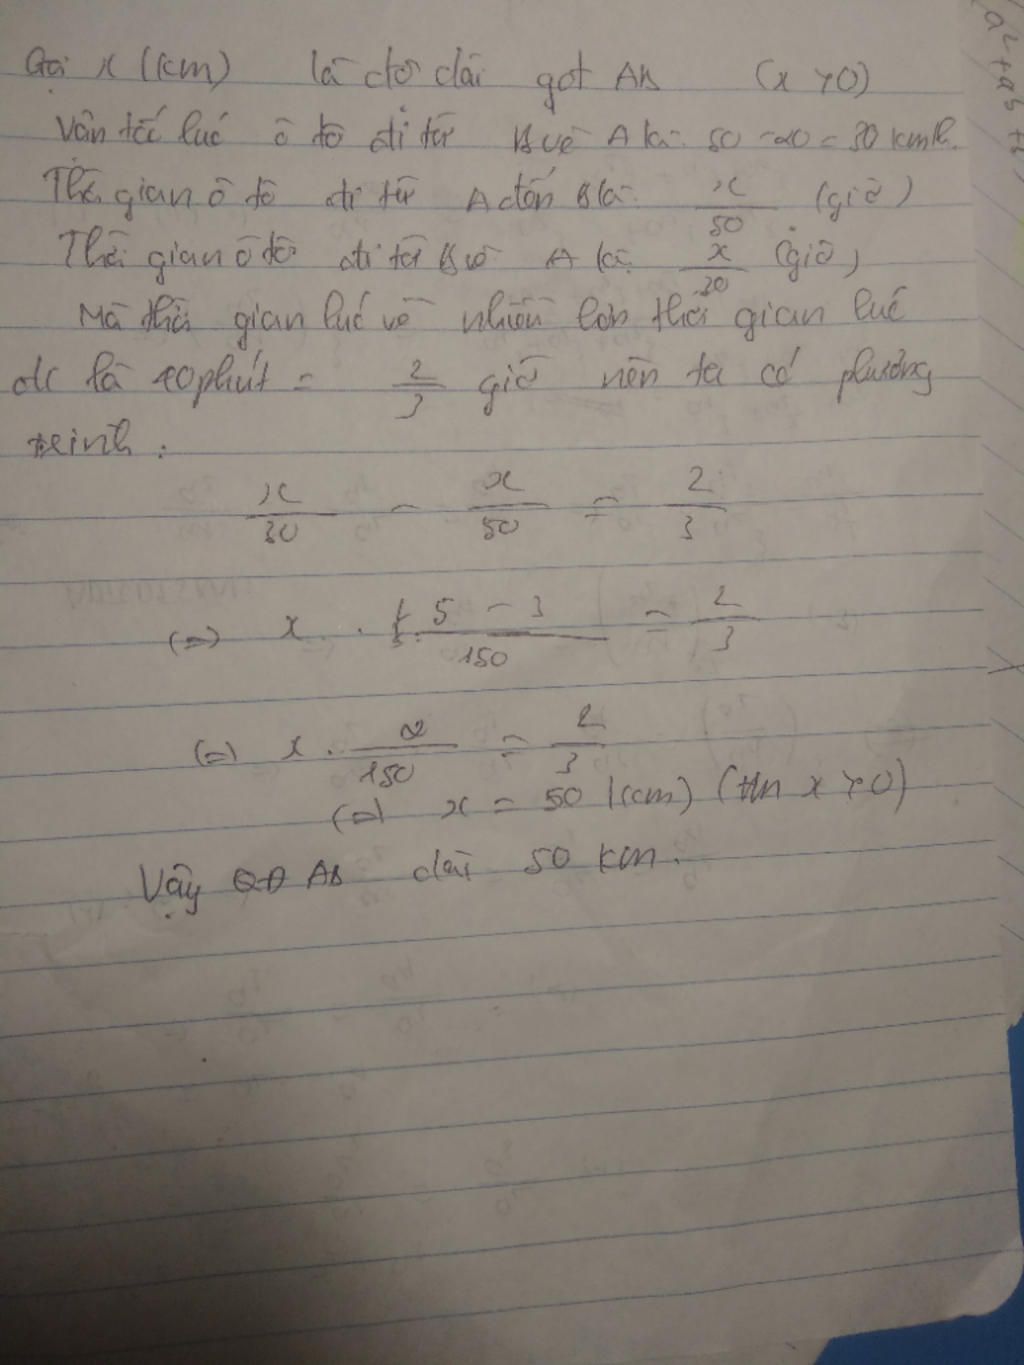 Gọi x (km) là độ dài qđ AB (x > 0)
Vận tốc lúc ô tô đi từ B về A là: 50 - 20 = 30 km/h.
Thời gian ô tô đi từ A đến B là: x/50 (giờ)
Thời gian ô tô đi từ B về A là: x/30 (giờ)
Mà thời gian lúc về nhiều hơn thời gian lúc
đi là 40 phút = 2/3 giờ nên ta có phương
trình:
x/30 - x/50 = 2/3
(=) x . (5 - 3)/150 = 2/3
(=) x . 2/150 = 2/3
(=) x = 50 (km) (tm x > 0)
Vậy QĐ AB dài 50 km.